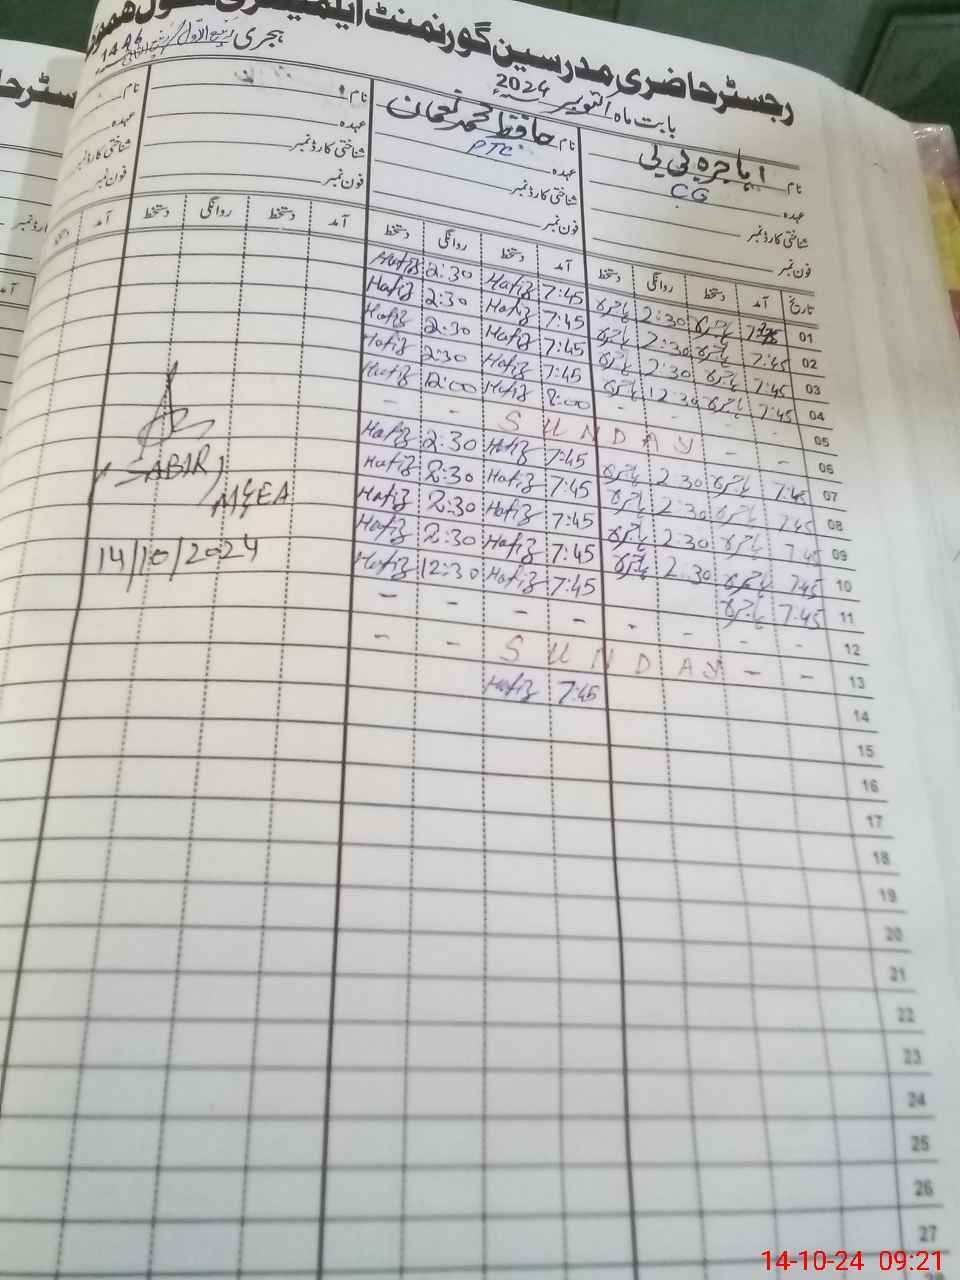 رجسٹر حاضری مدرسین گورنمنٹ ایلیمنٹری سکول
بابت ماہ اکتوبر 2024 ہجری ربیع الاول / ربیع الثانی 1446
نام حافظ محمد نعمان نام
نام ہاجرہ بی بی
عہدہ CG عہدہ PTC عہدہ عہدہ
شناختی کارڈ نمبر شناختی کارڈ نمبر شناختی کارڈ نمبر شناختی کارڈ نمبر
فون نمبر فون نمبر فون نمبر فون نمبر
تاریخ آمد دستخط روانگی دستخط آمد دستخط روانگی دستخط آمد دستخط روانگی دستخط آمد دستخط
01 7:45 ہاجرہ 2:30 ہاجرہ 7:45 Hafiz 2:30 Hafiz
02 7:45 ہاجرہ 2:30 ہاجرہ 7:45 Hafiz 2:30 Hafiz
03 7:45 ہاجرہ 2:30 ہاجرہ 7:45 Hafiz 2:30 Hafiz
04 7:45 ہاجرہ 12:30 ہاجرہ 7:45 Hafiz 2:30 Hafiz
05 - - - - 8:00 Hafiz 12:00 Hafiz
06 - - S U N D A Y - -
07 7:45 ہاجرہ 2:30 ہاجرہ 7:45 Hafiz 2:30 Hafiz
08 7:45 ہاجرہ 2:30 ہاجرہ 7:45 Hafiz 2:30 Hafiz
09 7:45 ہاجرہ 2:30 ہاجرہ 7:45 Hafiz 2:30 Hafiz
10 7:45 ہاجرہ 2:30 ہاجرہ 7:45 Hafiz 2:30 Hafiz
11 7:45 ہاجرہ 7:45 Hafiz 12:30 Hafiz
12 - - - - - - - -
13 - - S U N D A Y - -
14 7:45 Hafiz
15
16
17
18
19
20
21
22
23
24
25
26
27
SABIR
M&EA
14/10/2024
14-10-24 09:21